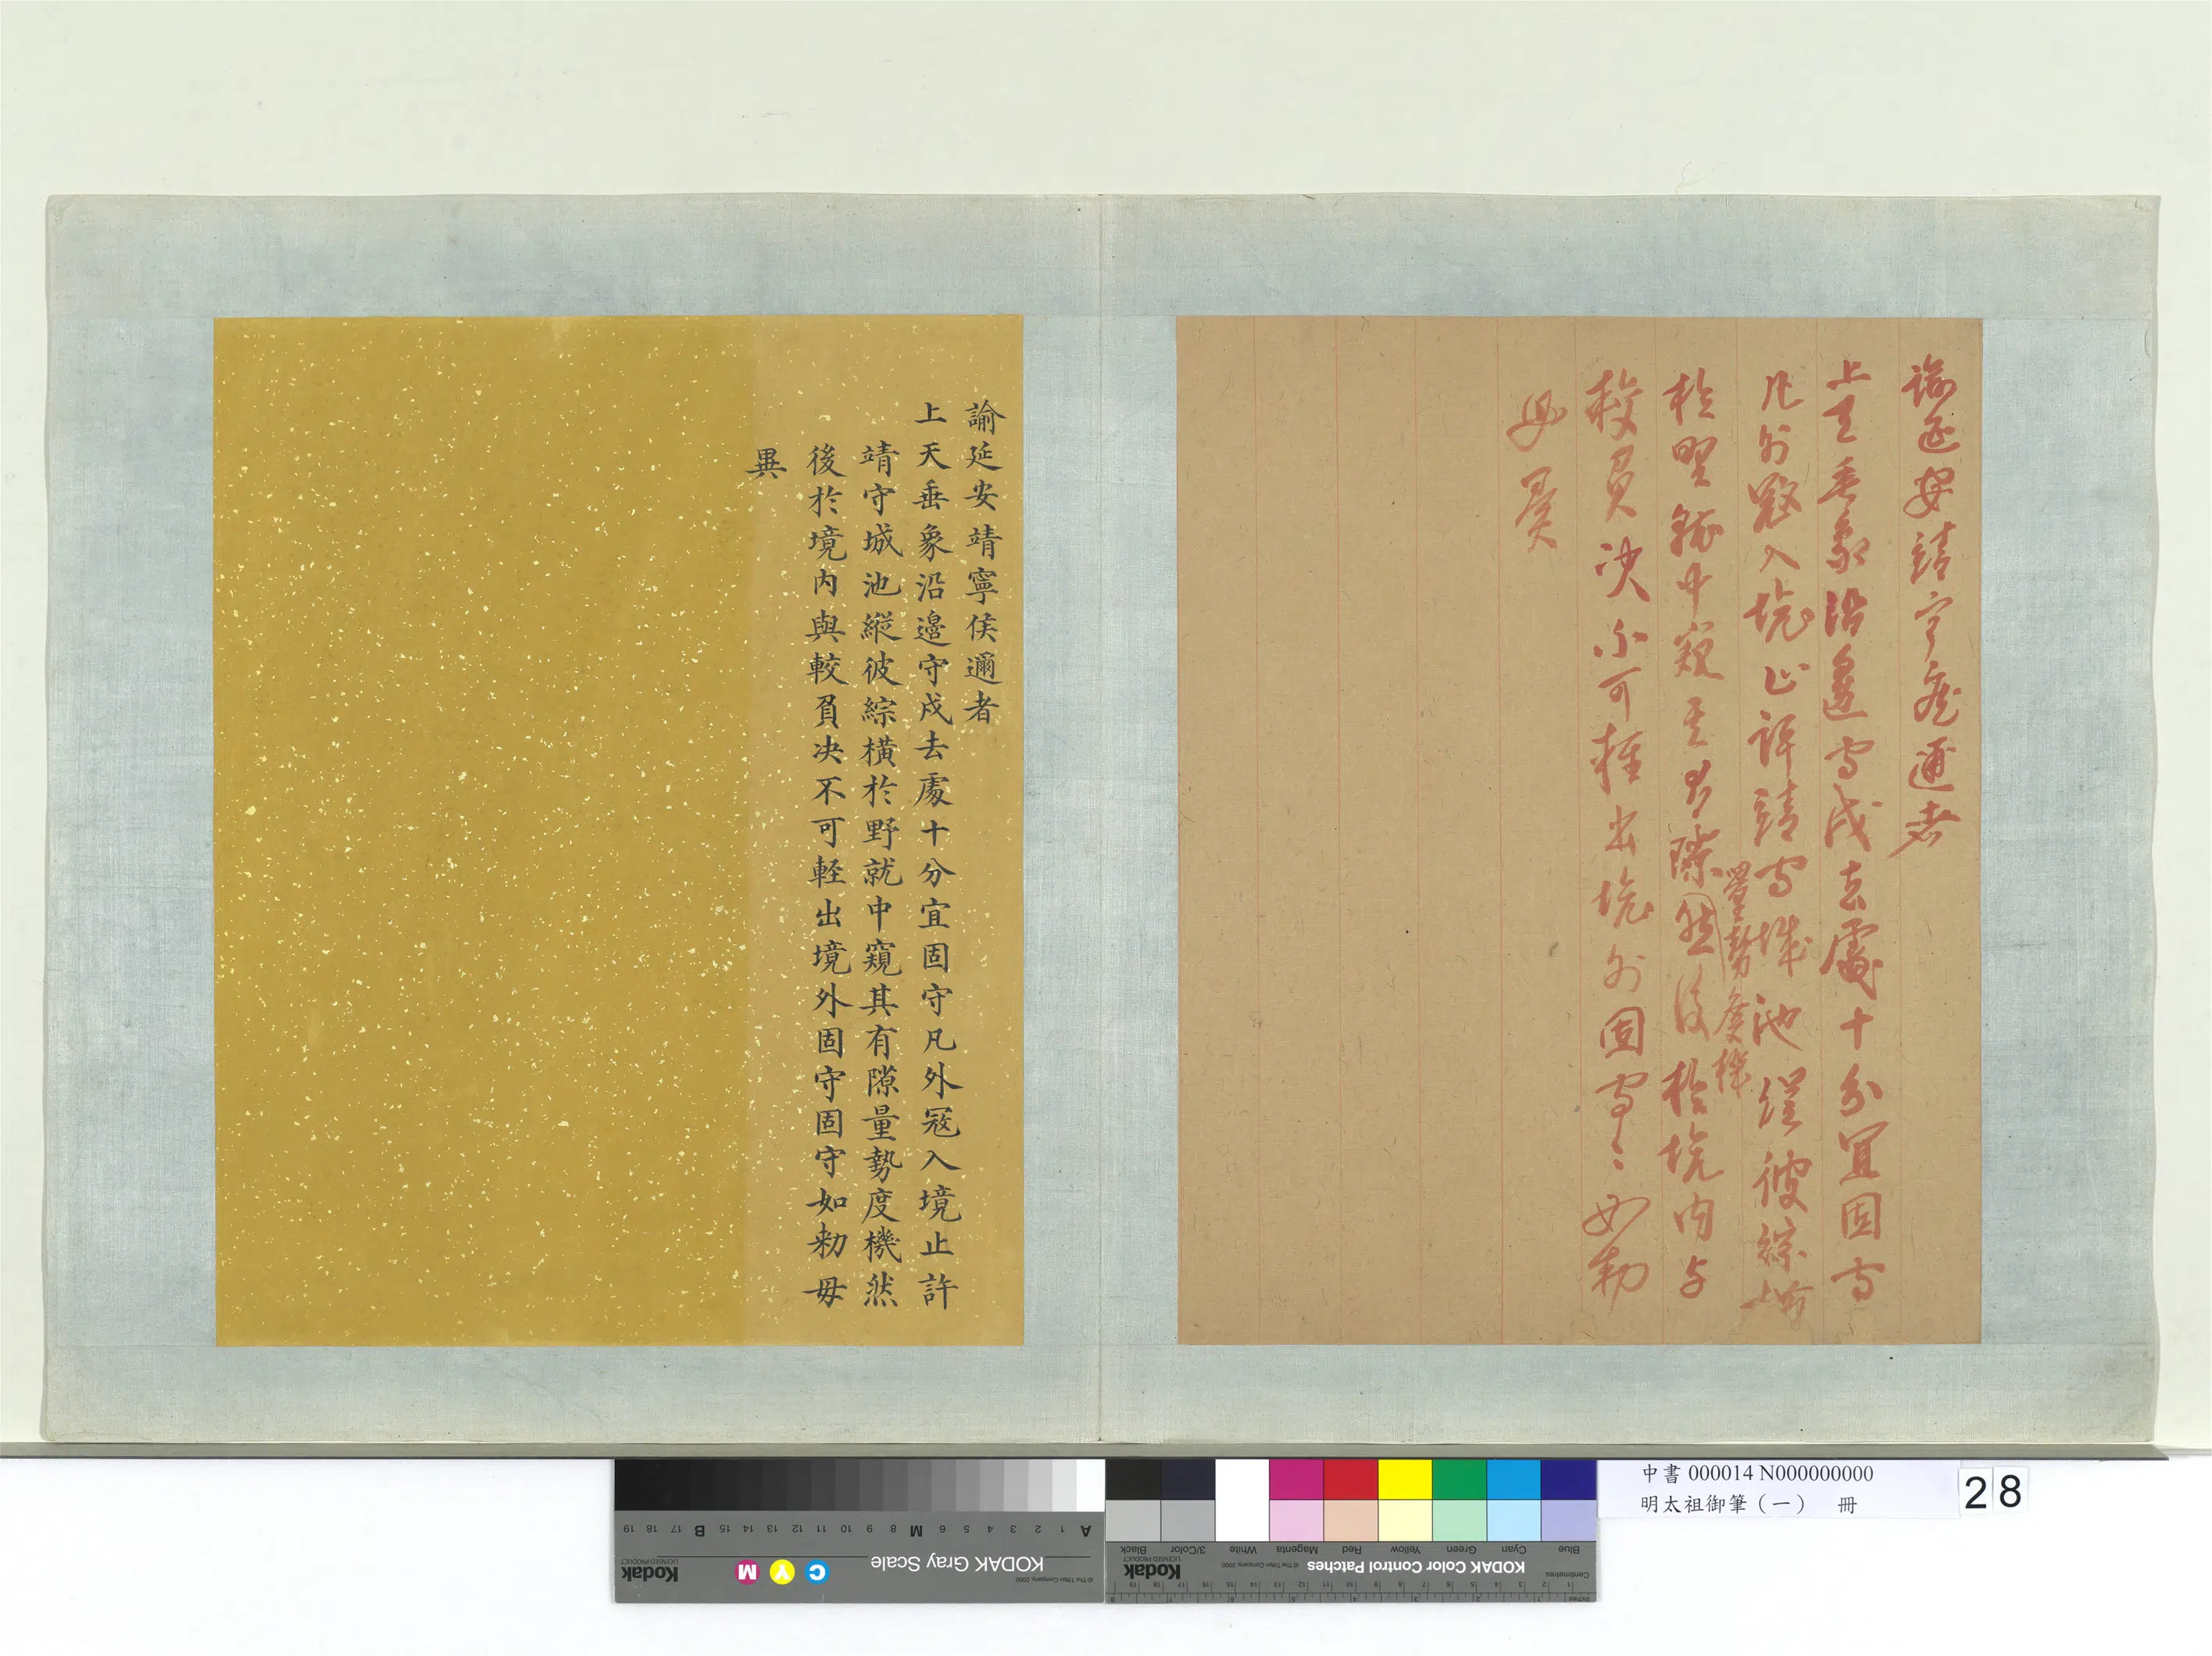 諭延安靖寧侯邇者
上天垂象沿邊守戍去處十分宜固守
凡外寇入境止許靖守城池縱彼綜橫
於野就中窺其有隙
量勢度機
然後於境內与
較負决不可輕出境外固守〻如勑
毋異
諭延安靖寧侯邇者
上天垂象沿邊守戍去處十分宜固守凡外冦入境止許
靖守城池縱彼綜橫於野就中窺其有隙量勢度機然
後於境内與較負决不可軽出境外固守固守如勑毋
異
中書 000014 N000000000
明太祖御筆（一） 冊
28
KODAK Gray Scale
Kodak
LICENSED PRODUCT
© The Tiffen Company, 2000
C Y M
A 1 2 3 4 5 6 M 8 9 10 11 12 13 14 15 B 17 18 19
KODAK Color Control Patches
Kodak
LICENSED PRODUCT
© The Tiffen Company, 2000
Blue Cyan Green Yellow Red Magenta White 3/Color Black
Centimetres
Inches